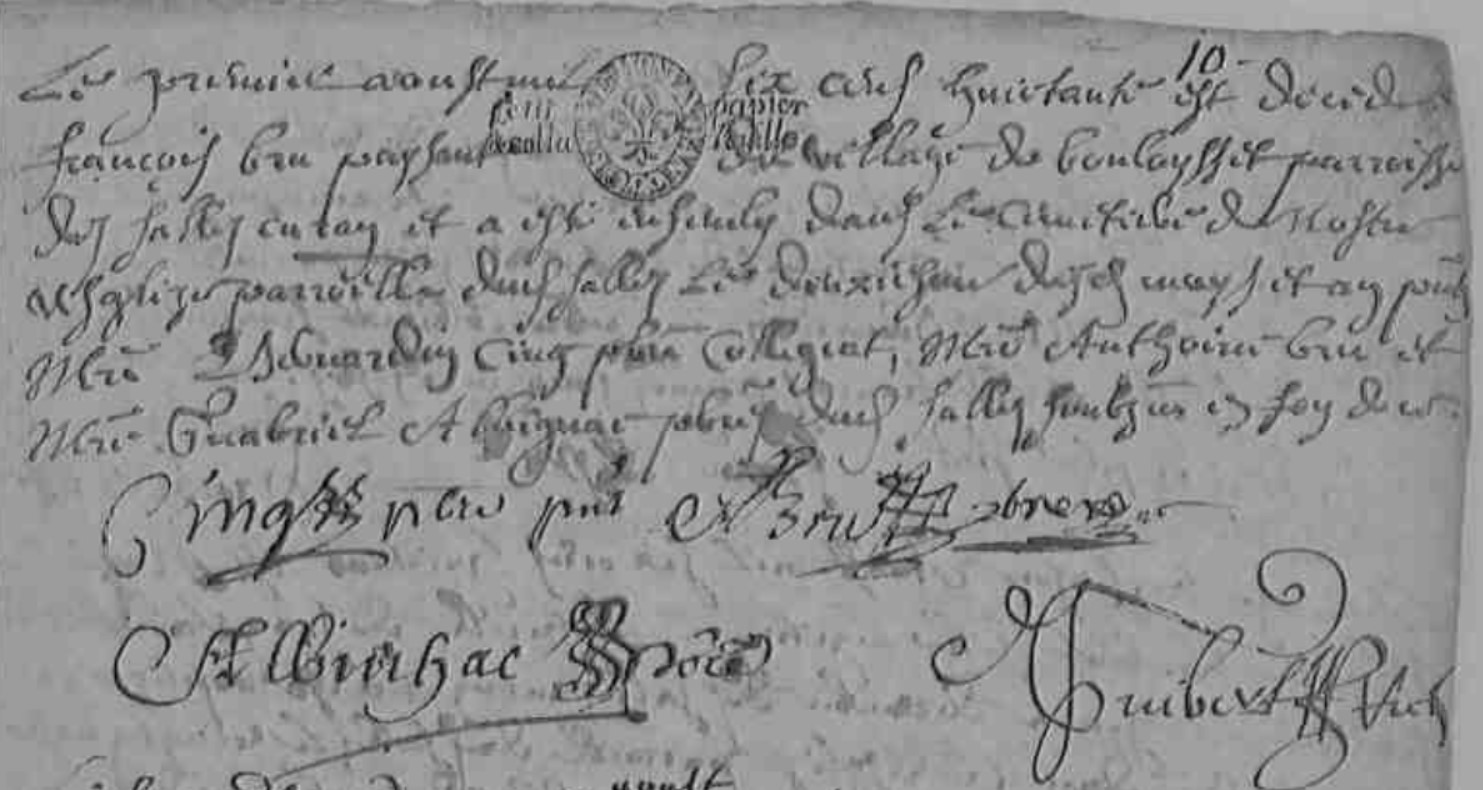 10
Le premier aoust mil six cens huictante est decede
françois bru paysant du village de bouloysset parroisse
des salles curan et a esté ensevely dans le cemetiere de nostre
esglize parroilles des salles le deuxiesme desd mois et an pnts
Mre Bernardin Cinq pbre Collegiat, Mre Anthoine bru et
Mre Guabriel Albignac pbres desd salles soubznes en foy de ce
Cinq pbre pnt A Bru pbre
Albinhac pbre Guibert Vic